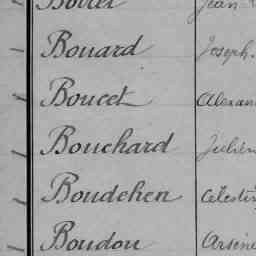 Bouard Joseph.
Boucet Alexan
Bouchard Julien
Boudehen Célestin
Boudou Arsène